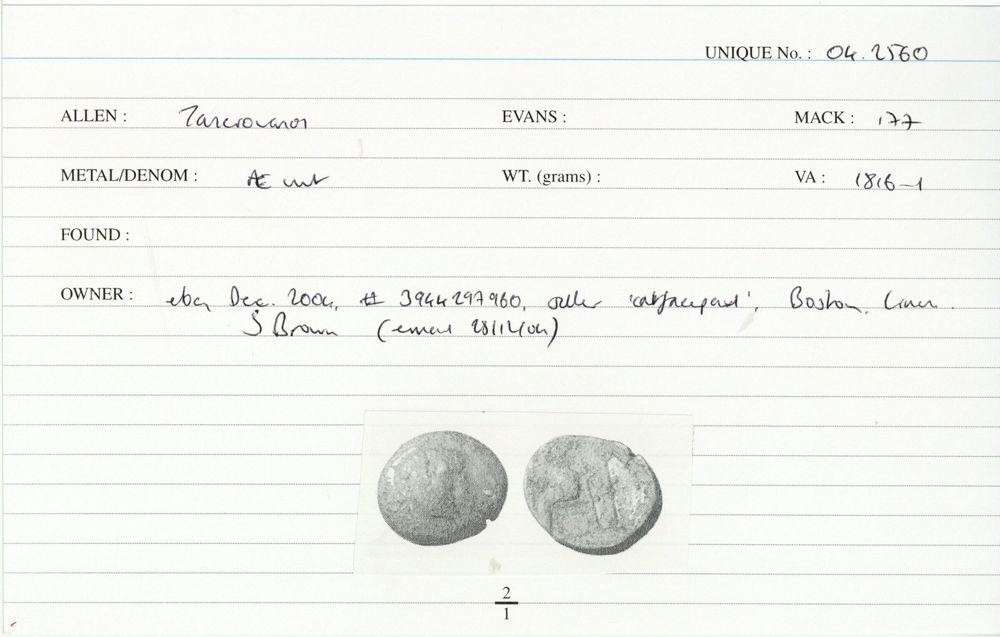 UNIQUE No. : 04.2560
ALLEN : Tasciovanos EVANS : MACK : 177
METAL/DENOM : Æ unit WT. (grams) : VA : 1816-1
FOUND :
OWNER : ebay Dec. 2004, # 3944297960, seller Boston, Lincs.
S Brown (email 28/12/04)
2
1